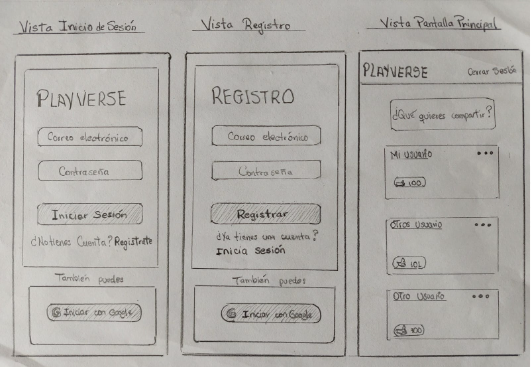 Vista Inicio de Sesión
PLAYVERSE
Correo electrónico
Contraseña
Iniciar Sesión
¿No tienes Cuenta? Registrate
También puedes
G Iniciar con Google
Vista Registro
REGISTRO
Correo electrónico
Contraseña
Registrar
¿Ya tienes una cuenta?
Inicia Sesión
También puedes
G Iniciar con Google
Vista Pantalla Principal
PLAYVERSE Cerrar Sesión
¿Qué quieres compartir?
Mi usuario
100
Otros usuario
102
Otro usuario
100